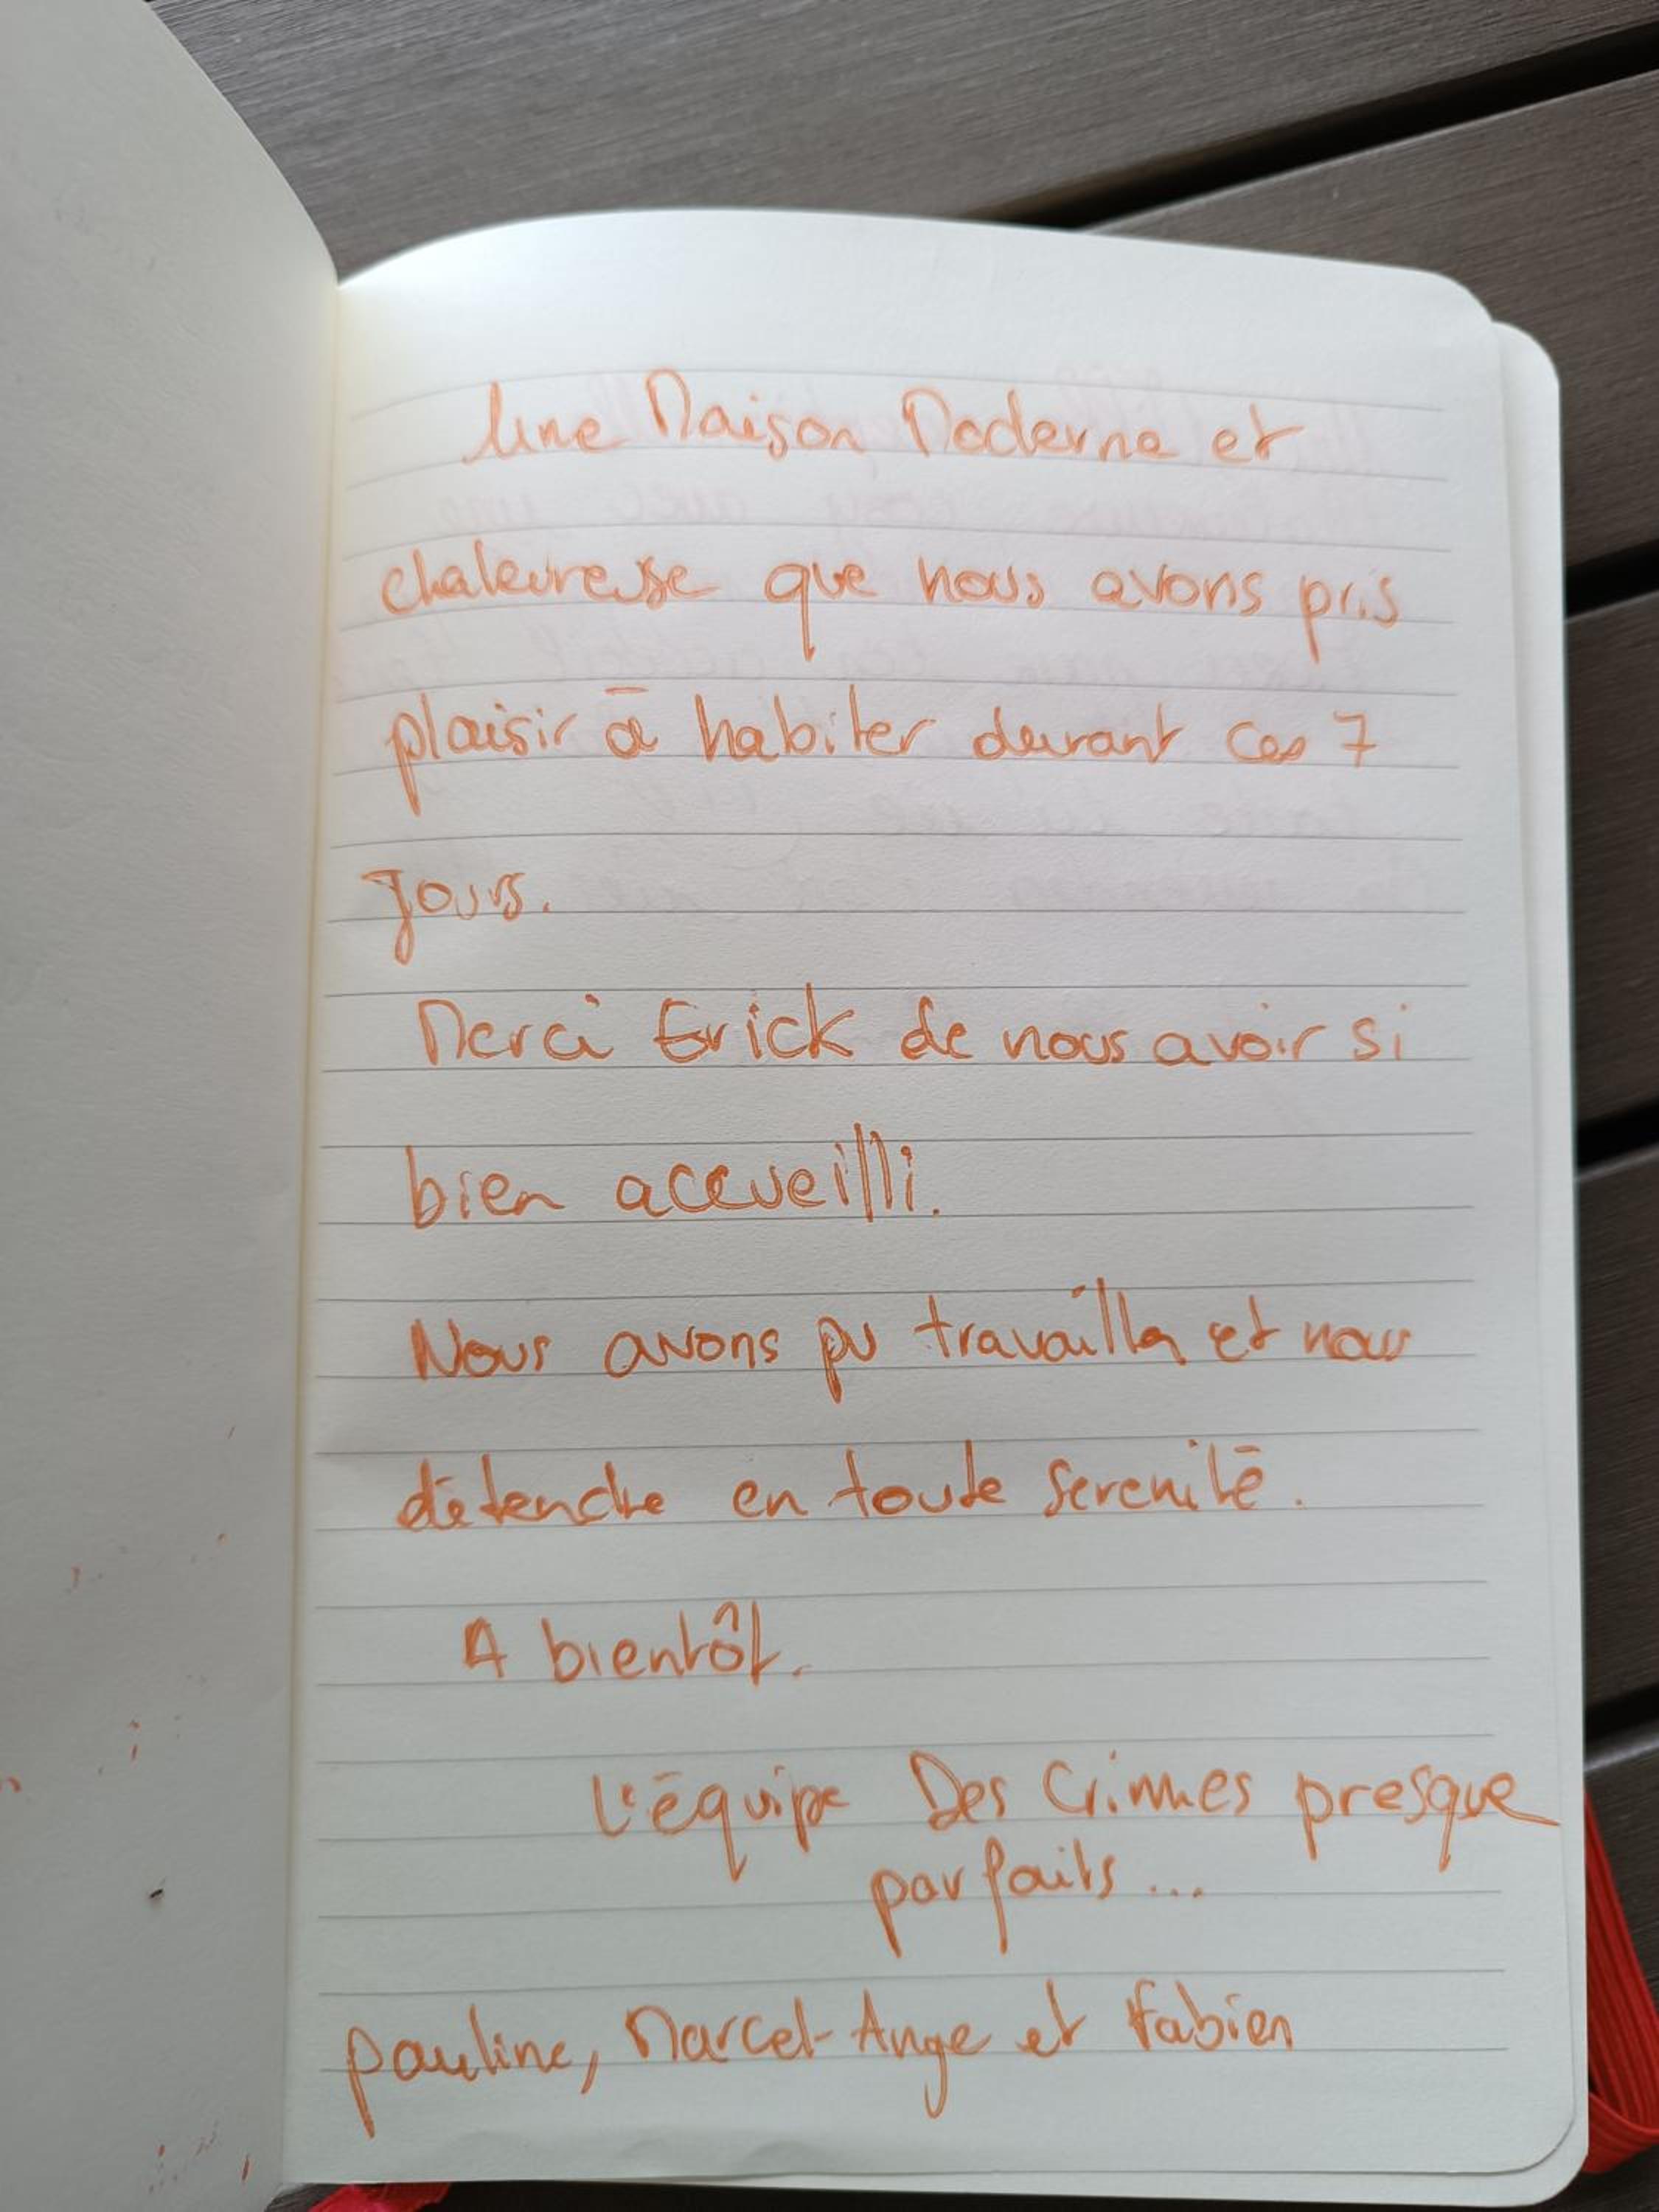 Une Maison Moderne et
chaleureuse que nous avons pris
plaisir à habiter durant ces 7
Jours.
Merci Erick de nous avoir si
bien acceueilli.
Nous avons pu travailler et nous
détendre en toute serenité.
A bientôt.
L'équipe Des Crimmes presque
parfaits...
pauline, Marcel-Ange et Fabien